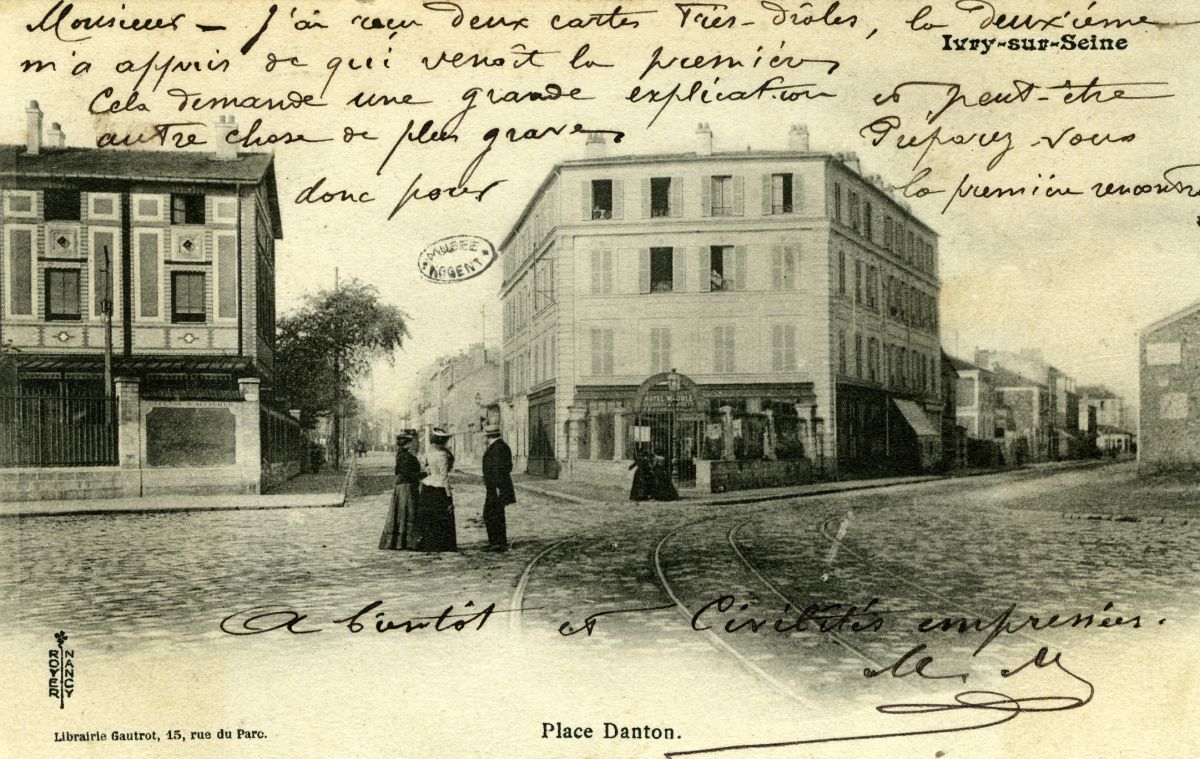 Monsieur - J'ai reçu deux cartes très-drôles, la deuxième
Ivry-sur-Seine
m'a appris de qui venait la première
Cela demande une grande explication et peut-être
autre chose de plus grave Préparez-vous
donc pour la première rencontre
MUSÉE
NOGENT
HOTEL MEUBLÉ
A bientôt et Civilités empressées.
M. M
ROYER
NANCY
Librairie Gautrot, 15, rue du Parc.
Place Danton.